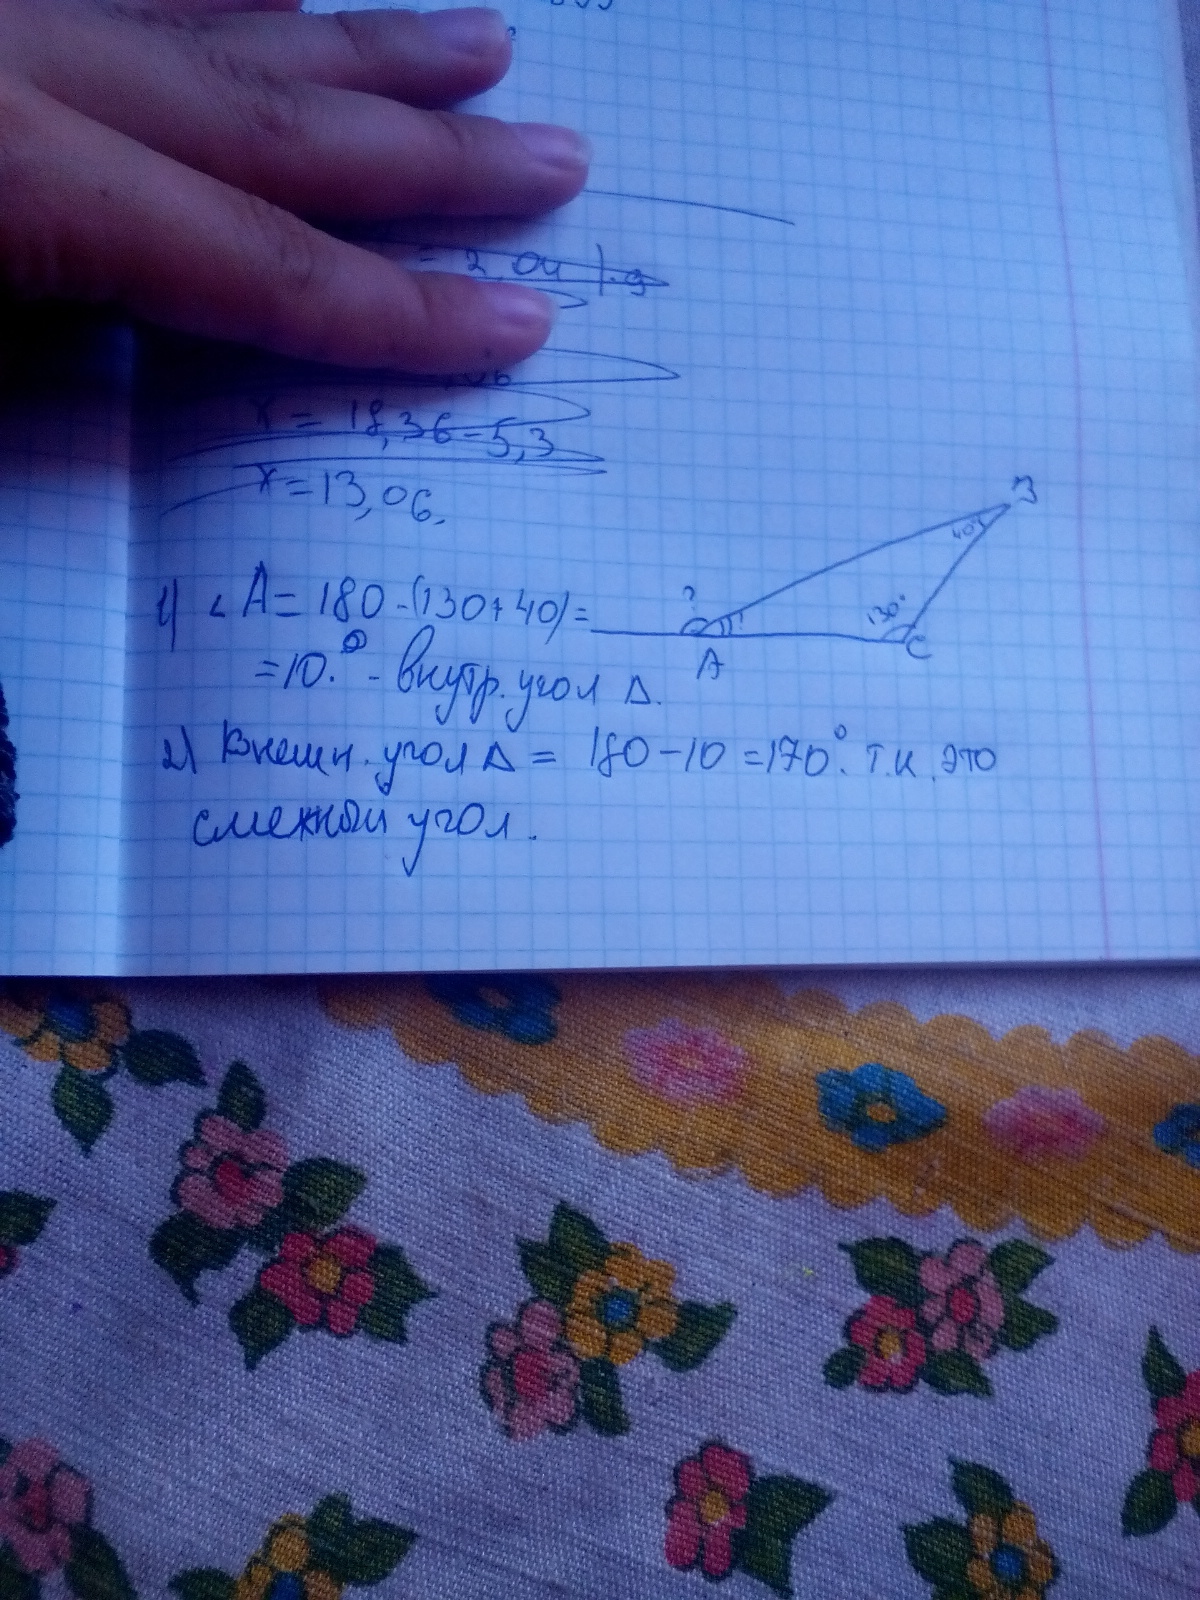 = 2,04 | · 9
,06
x = 18,36 - 5,3
x = 13,06.
B
40°
1) ∠ A = 180 - (130 + 40) =
?
130°
A
C
= 10.° - внутр. угол Δ.
2) Внешн. угол Δ = 180 - 10 = 170°. т.к. это
смежный угол.